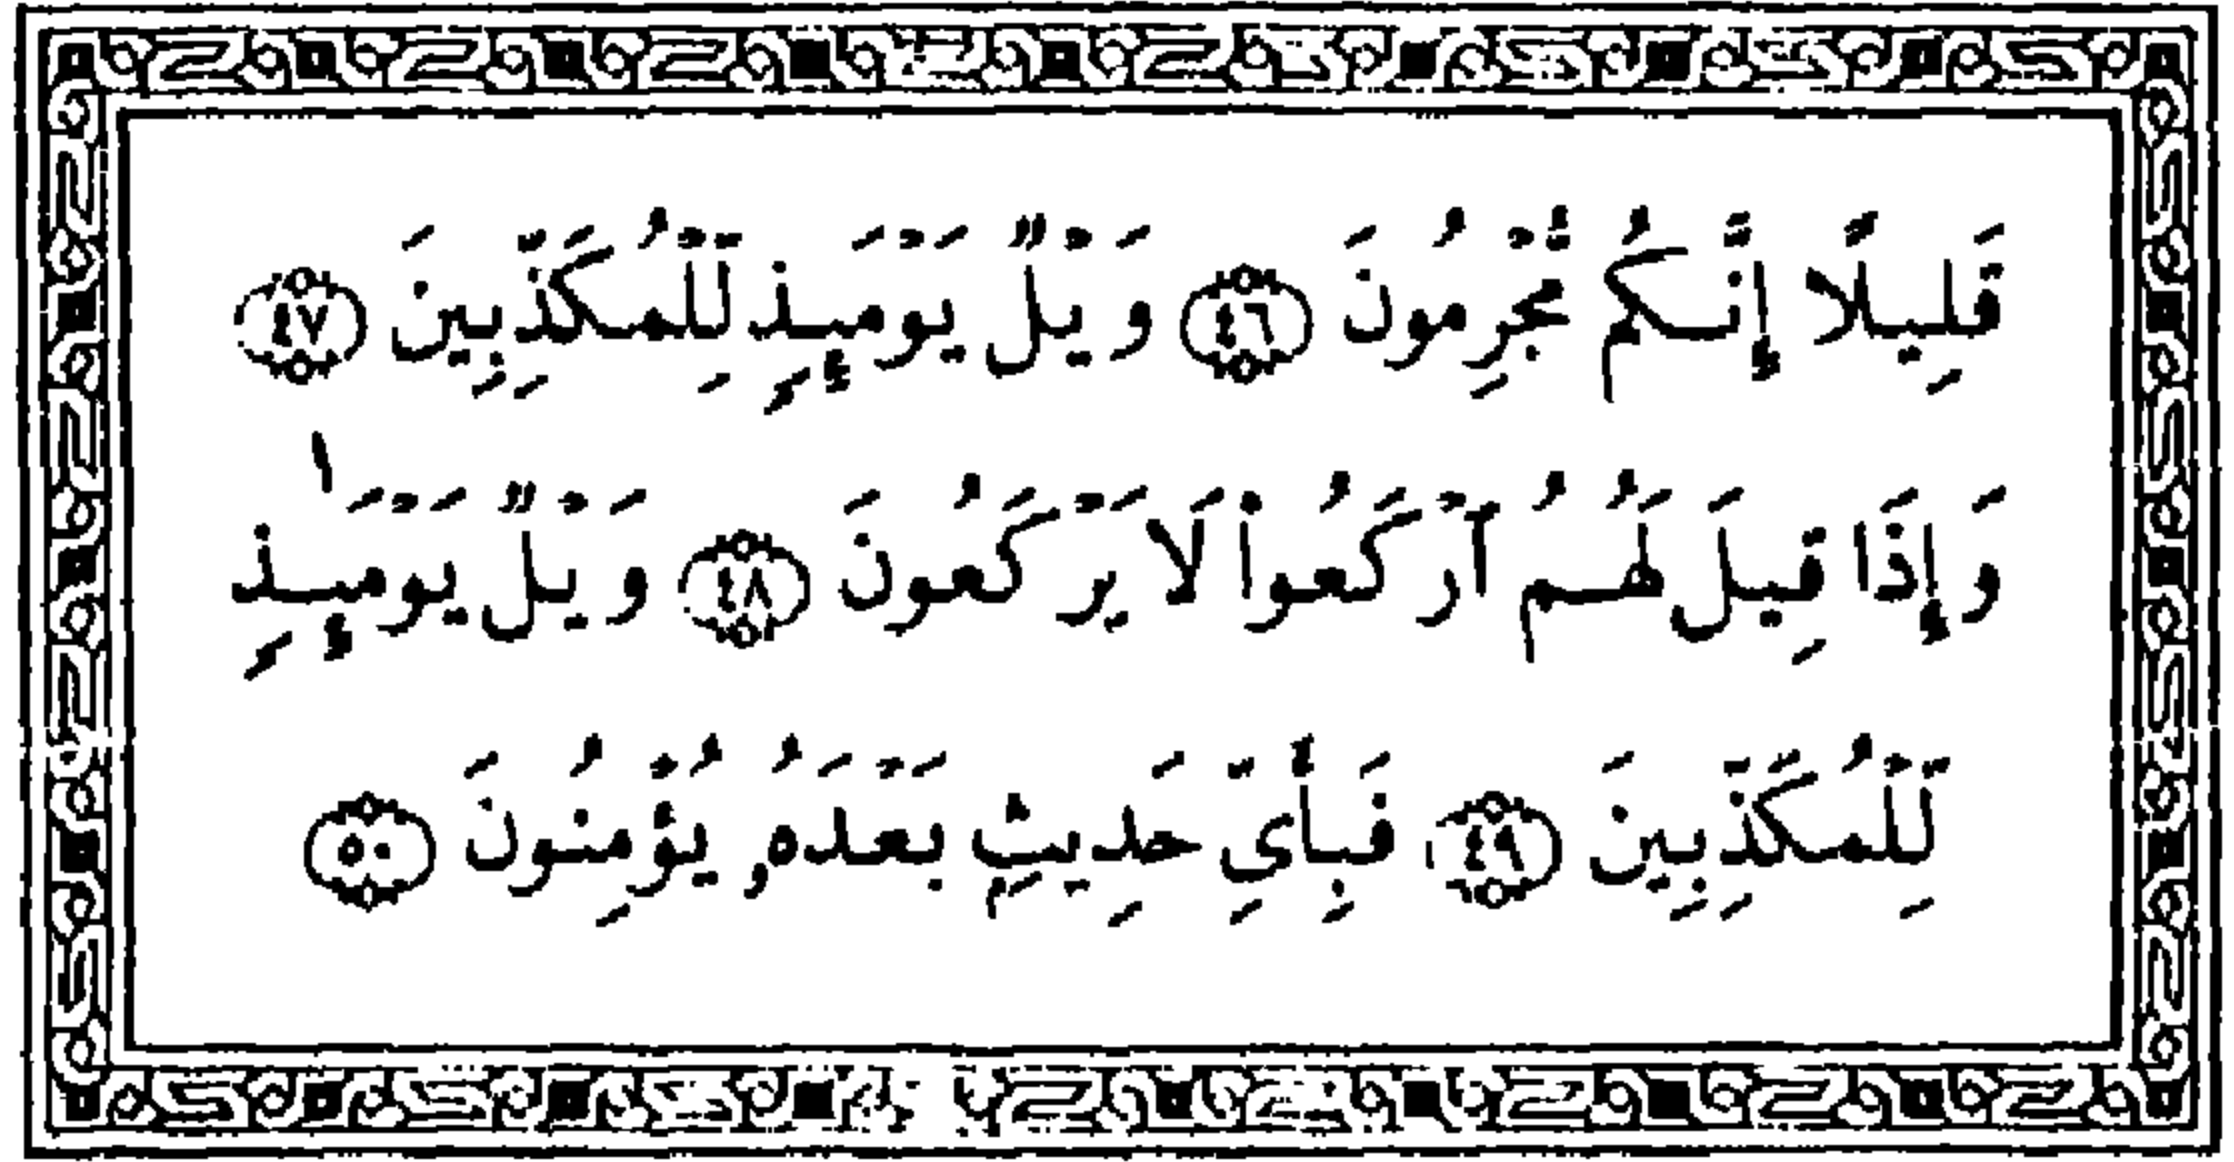 قَلِيلًا إِنَّكُم مُّجْرِمُونَ ٤٦ وَيْلٌ يَوْمَئِذٍ لِّلْمُكَذِّبِينَ ٤٧
وَإِذَا قِيلَ لَهُمُ ٱرْكَعُوا۟ لَا يَرْكَعُونَ ٤٨ وَيْلٌ يَوْمَئِذٍ
لِّلْمُكَذِّبِينَ ٤٩ فَبِأَىِّ حَدِيثٍۭ بَعْدَهُۥ يُؤْمِنُونَ ٥٠